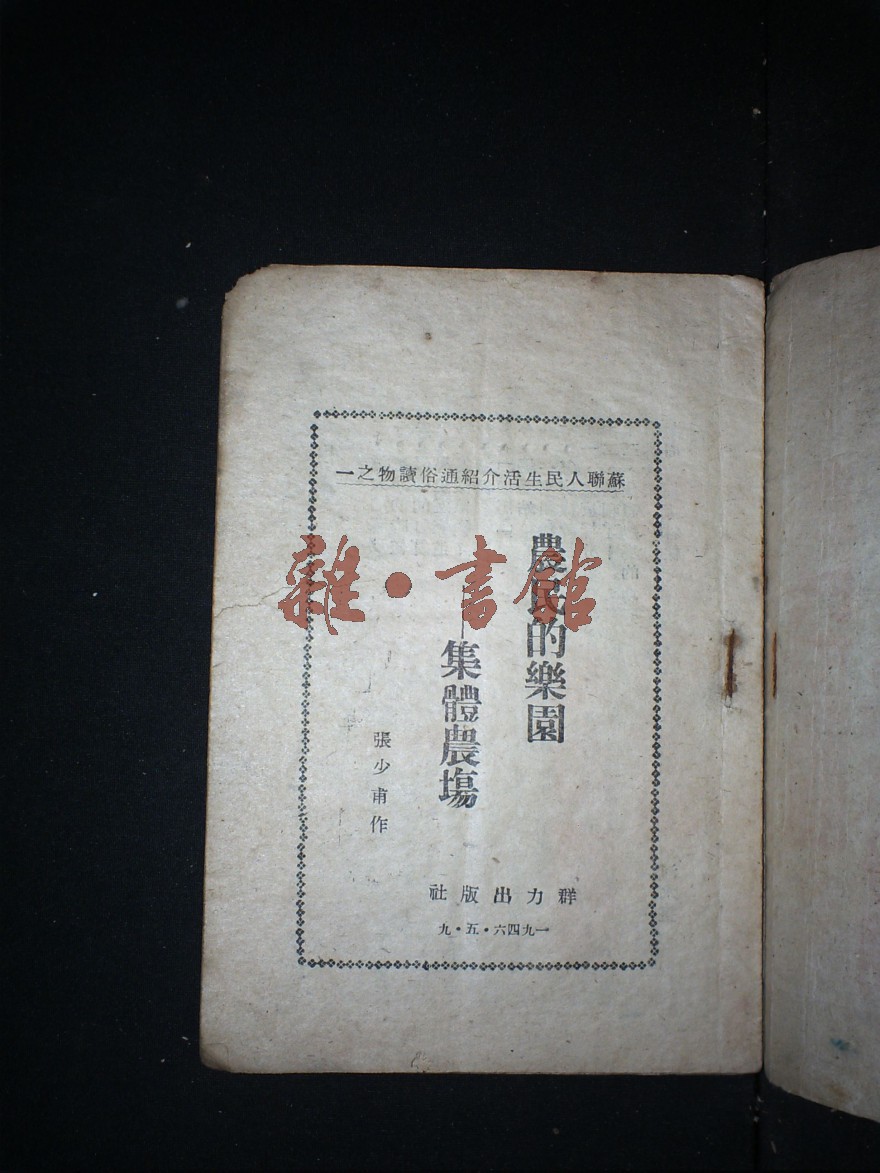 蘇聯人民生活介紹通俗讀物之一
農民的樂園
—集體農塲
張少甫作
群力出版社
一九四六·五·九
雜·書館